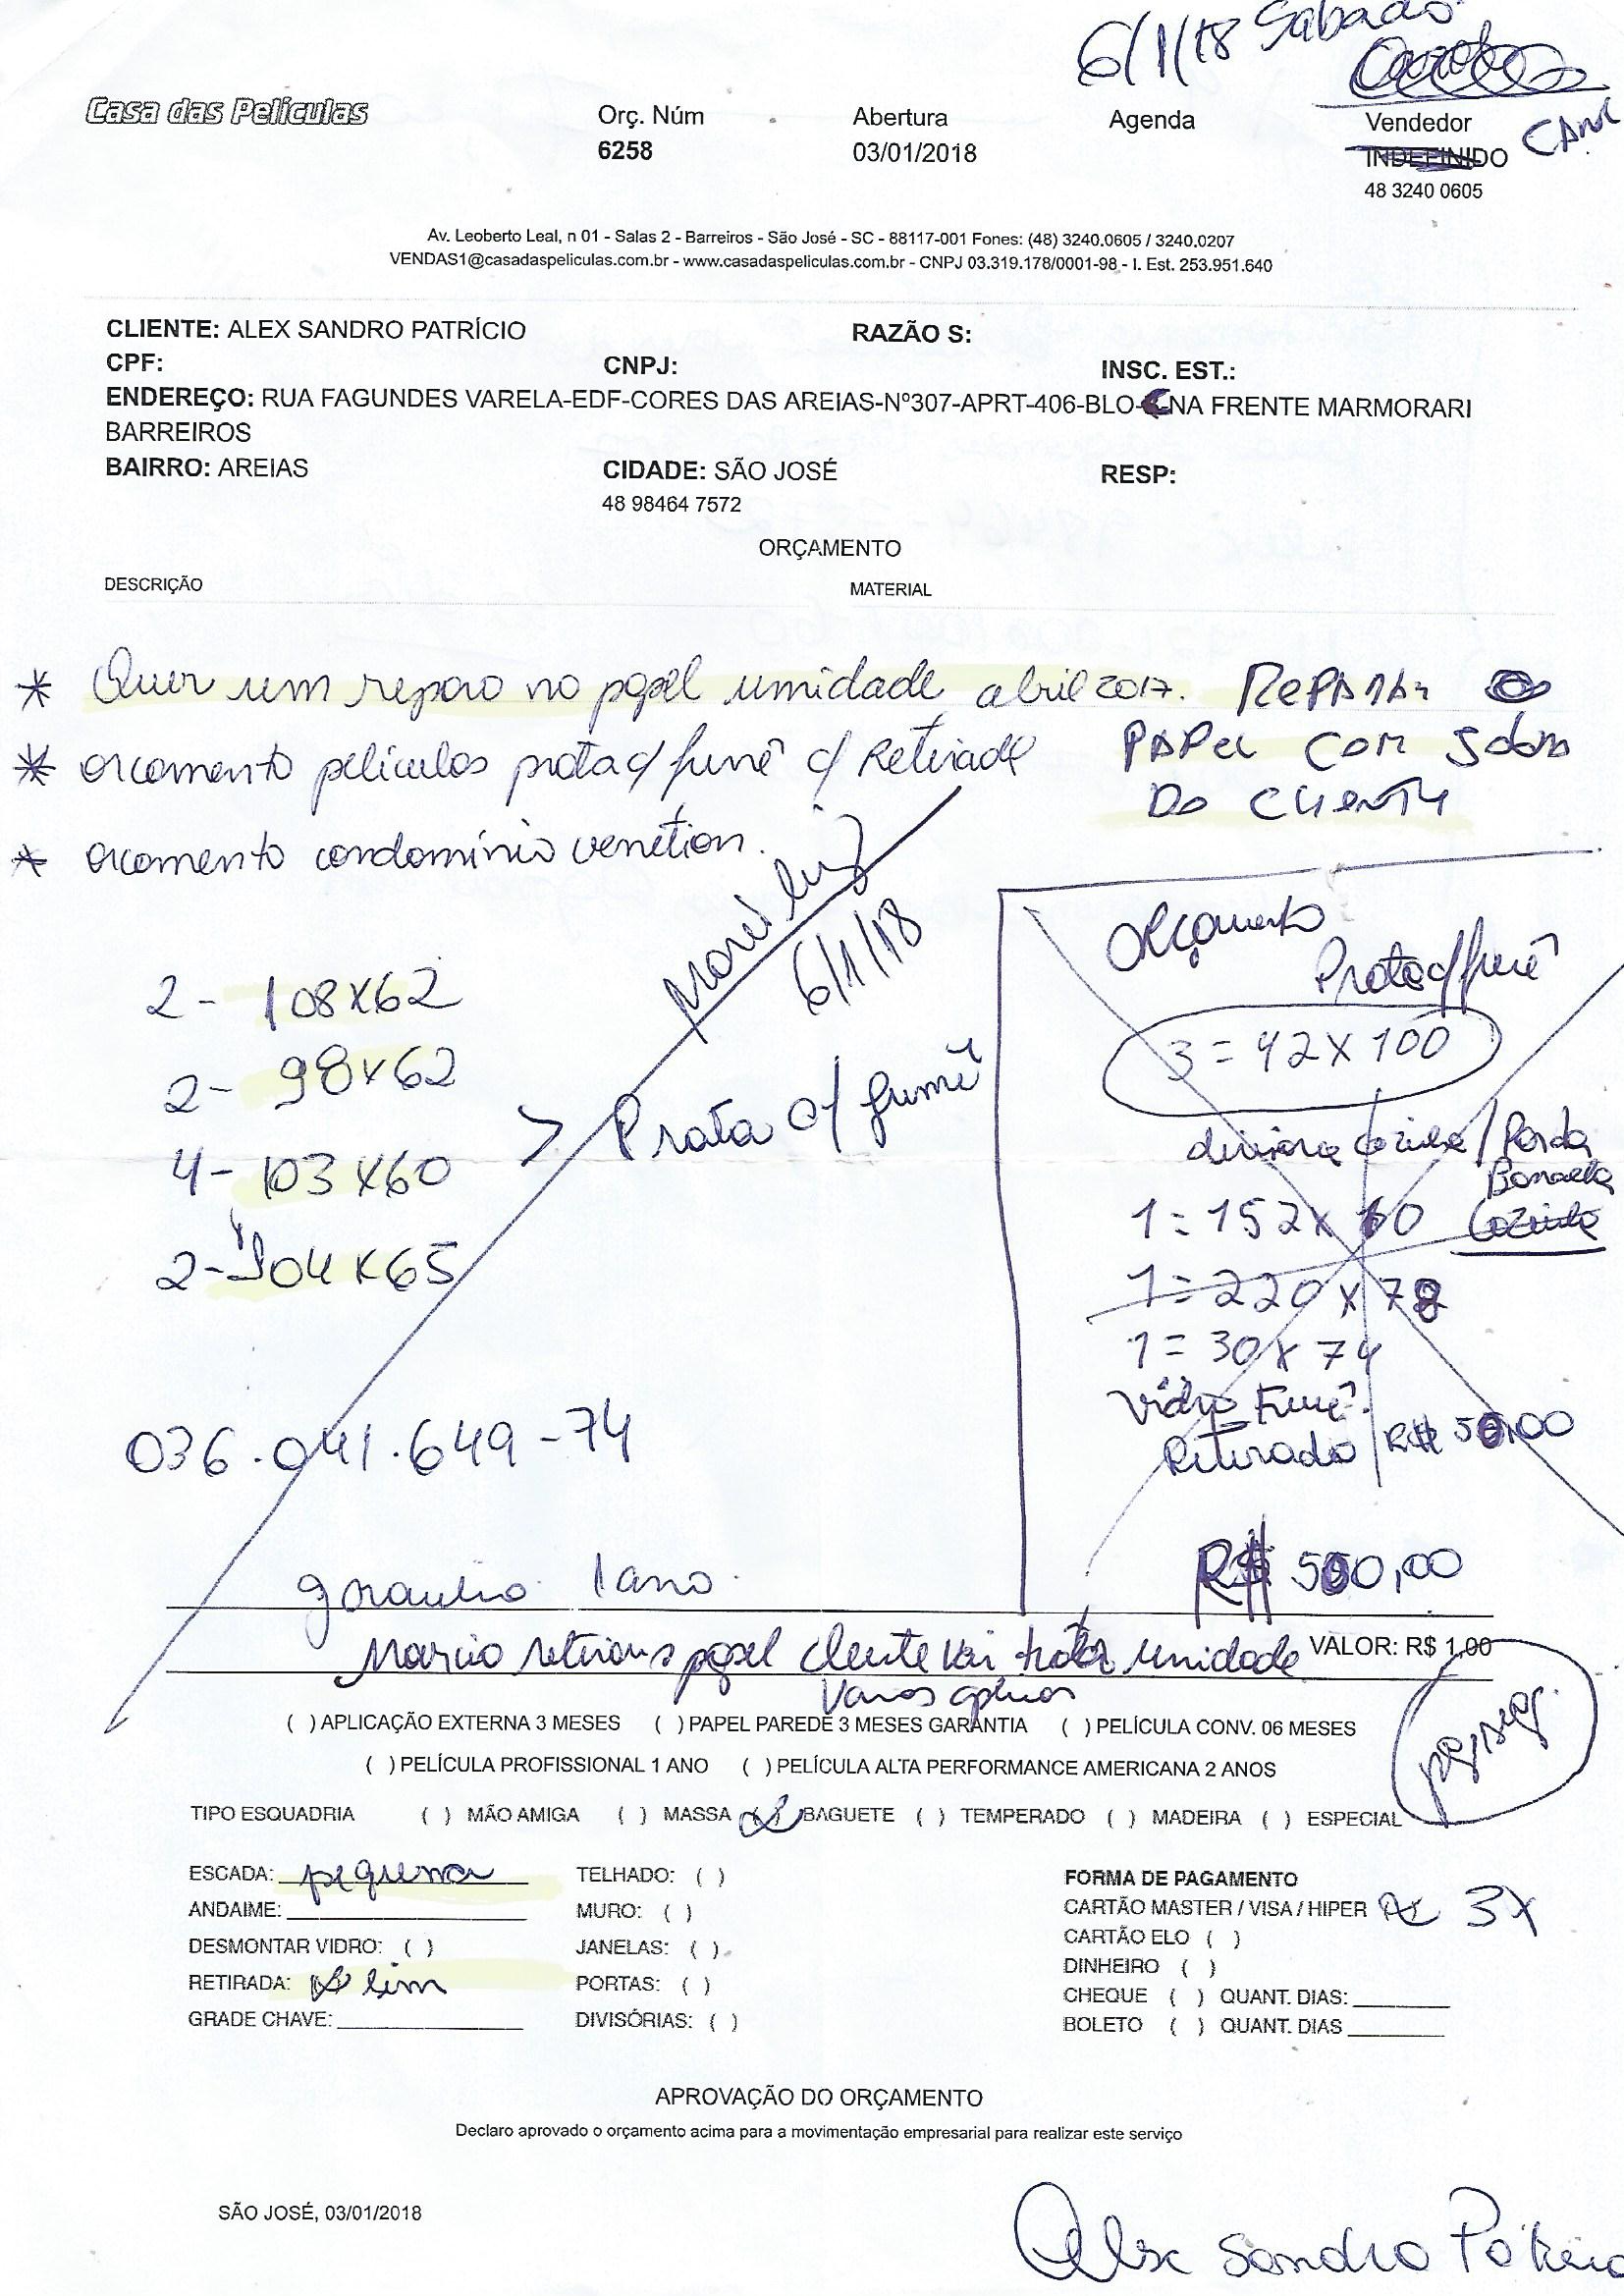 6/1/18 Sabado
Casa das Películas
Orç. Núm Abertura Agenda Vendedor
6258 03/01/2018 INDEFINIDO
48 3240 0605
Av. Leoberto Leal, n 01 - Salas 2 - Barreiros - São José - SC - 88117-001 Fones: (48) 3240.0605 / 3240.0207
VENDAS1@casadaspeliculas.com.br - www.casadaspeliculas.com.br - CNPJ 03.319.178/0001-98 - I. Est. 253.951.640
CLIENTE: ALEX SANDRO PATRÍCIO RAZÃO S:
CPF: CNPJ: INSC. EST.:
ENDEREÇO: RUA FAGUNDES VARELA-EDF-CORES DAS AREIAS-Nº307-APRT-406-BLO-C NA FRENTE MARMORARI
BARREIROS
BAIRRO: AREIAS CIDADE: SÃO JOSÉ RESP:
48 98464 7572
ORÇAMENTO
DESCRIÇÃO MATERIAL
* Quer um reparo no papel umidade abril 2017. REPARAR
PAPEL COM SOBRA
DO CLIENTE
* orcamento películas prata c/ fumê c/ Retirada
* orcamento condomínio venetian.
6/1/18
2 - 108x62
2 - 98x62
4 - 103x60
2 - 104x65
> Prata c/ fumê
Orçamento
Prata c/ fumê
3 = 42 x 100
divisória cozinha /
1 = 152 x 60 Cozinha
1 = 220 x 78
1 = 30 x 74
Vidro Fumê
Retirada R$ 50,00
036.041.649-74
R$ 500,00
garantia 1 ano.
Marcio papel cliente vai tratar umidade VALOR: R$ 1,00
( ) APLICAÇÃO EXTERNA 3 MESES ( ) PAPEL PAREDE 3 MESES GARANTIA ( ) PELÍCULA CONV. 06 MESES
( ) PELÍCULA PROFISSIONAL 1 ANO ( ) PELÍCULA ALTA PERFORMANCE AMERICANA 2 ANOS
TIPO ESQUADRIA ( ) MÃO AMIGA ( ) MASSA (x) BAGUETE ( ) TEMPERADO ( ) MADEIRA ( ) ESPECIAL
pagseg.
ESCADA: pequena TELHADO: ( ) FORMA DE PAGAMENTO
ANDAIME: MURO: ( ) CARTÃO MASTER / VISA / HIPER (x) 3x
DESMONTAR VIDRO: ( ) JANELAS: ( ) CARTÃO ELO ( )
RETIRADA: (x) sim PORTAS: ( ) DINHEIRO ( )
GRADE CHAVE: DIVISÓRIAS: ( ) CHEQUE ( ) QUANT. DIAS:
BOLETO ( ) QUANT. DIAS
APROVAÇÃO DO ORÇAMENTO
Declaro aprovado o orçamento acima para a movimentação empresarial para realizar este serviço
SÃO JOSÉ, 03/01/2018
Alex Sandro